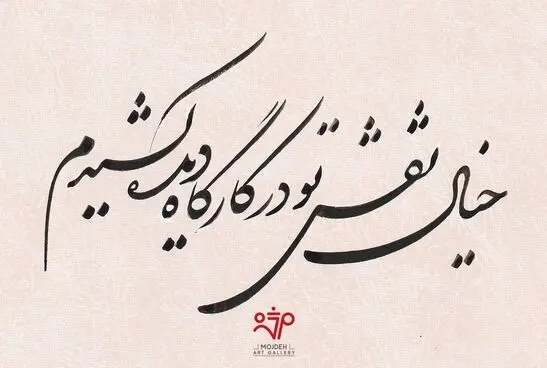 خیال نقش تو در کارگاه دیده کشیدم
مژده
MOJDEH
ART GALLERY